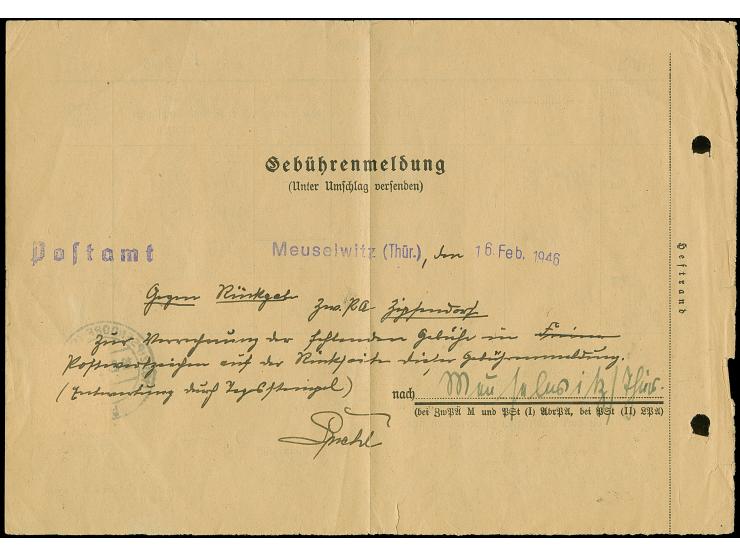 Gebührenmeldung
(Unter Umschlag versenden)
Postamt Meuselwitz (Thür.), den 16. Feb. 1946
Gegen Rückgabe Zw.PA Zipsendorf
Zur Verrechnung der fehlenden Gebühr in
Postwertzeichen auf der Rückseite dieser Gebührenmeldung.
(Entwertung durch Tagesstempel)
nach Meuselwitz/Thür.
(bei ZwPÄ M und PSt (I) AbrPA, bei PSt (II) LPA)
Heftrand